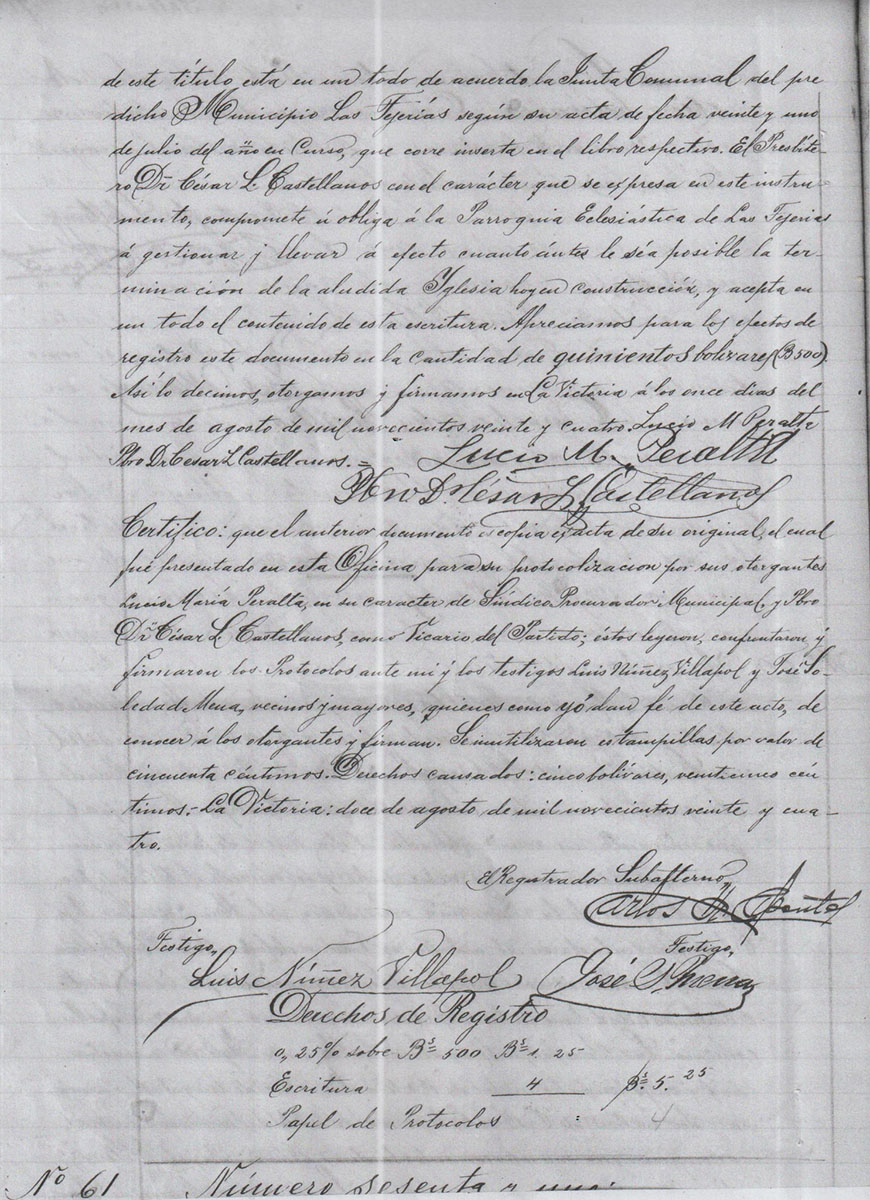 de este título, está en un todo de acuerdo la Junta Comunal del pre
dicho Municipio Las Tejerías según su acta de fecha veinte y uno
de julio del año en Curso, que corre inserta en el libro respectivo. El Presbíte-
ro Dr. César L. Castellanos con el carácter que se expresa en este instru-
mento, compromete ú obliga á la Parroquia Eclesiástica de Las Tejerias
á gestionar y llevar á efecto cuanto ántes le séa posible la ter-
minación de la aludida Yglesia hoy en construcción, y acepta en
un todo el contenido de esta escritura. Apreciamos para los efectos de
registro este documento en la cantidad de quinientos bolívares (B 500).
Así lo decimos, otorgamos y firmamos en La Victoria á los once dias del
mes de agosto de mil novecientos veinte y cuatro. Lucio M Peralta
Pbro Dr César L Castellanos. = Lucio M. Peralta
Pbro Dr César L. Castellanos
Certifico: que el anterior documento es copia exacta de su original, el cual
fué presentado en esta Oficina para su protocolizacion por sus otorgantes
Lucio María Peralta, en su caracter de Síndico Procurador Municipal, y Pbro
Dr. César L. Castellanos, como Vicario del Partido; éstos leyeron, confrontaron y
firmaron los Protocolos ante mí y los testigos Luis Núñez Villapol y José So-
ledad Mena, vecinos y mayores, quienes como yó dan fé de este acto, de
conocer á los otorgantes y firman. Se inutilizaron estampillas por valor de
cincuenta céntimos. Derechos causados: cinco bolívares, venticinco cén
timos.- La Victoria: doce de agosto de mil novecientos veinte y cua-
tro.
El Registrador Subalterno,
Carlos
Testigo, Testigo,
Luis Núñez Villapol José S. Mena
Derechos de Registro
0,25% sobre Bs 500 Bs 1. 25
Escritura 4 Bs. 5. 25
Papel de Protocolos : 4
No 61 Número sesenta y uno: